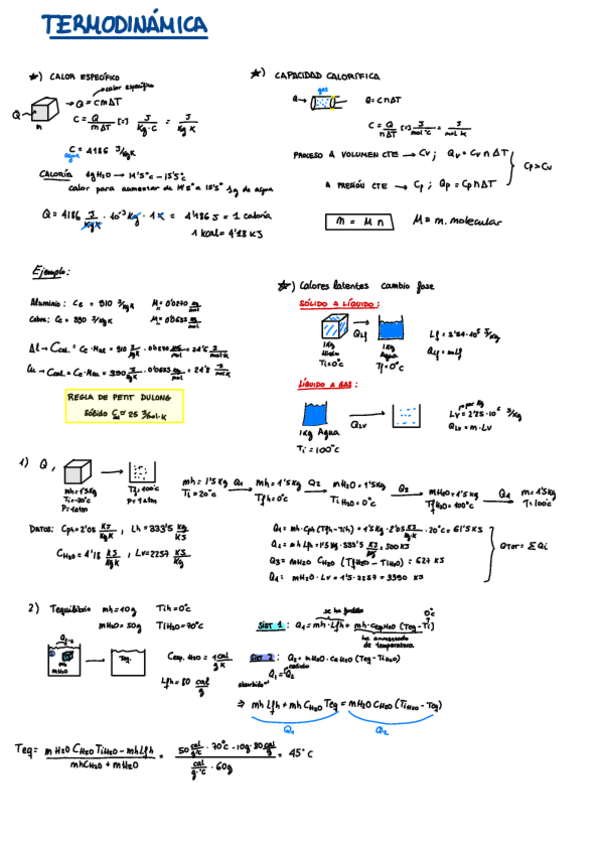 TERMODINÁMICA
*) CALOR ESPECÍFICO
calor específico
Q → Q = C m ΔT
m
C = Q / mΔT [=] J / Kg·C = J / Kg K
C agua = 4186 J/KgK
CALORÍA 1g H2O → 14'5°C – 15'5°C
calor para aumentar de 14'5° a 15'5° 1g de agua
Q = 4186 J/KgK · 10^-3 Kg · 1K = 4'186 J = 1 caloría
1 kcal = 4'18 KJ
*) CAPACIDAD CALORÍFICA
gas
Q → Q = C n ΔT
C = Q / nΔT [=] J / mol °C = J / mol K
PROCESO A VOLUMEN CTE → Cv ; Qv = Cv n ΔT
A PRESIÓN CTE → Cp ; Qp = Cp n ΔT
Cp > Cv
m = M n M = m. molecular
Ejemplo:
Aluminio: Ce = 910 J/KgK
Cobre: Ce = 390 J/KgK
REGLA DE PETIT DULONG
Sólido ≃ 25 J/mol·K
*) Calores latentes cambio fase
SÓLIDO A LÍQUIDO:
QLf
1Kg Hielo Ti = 0°C
1Kg Agua Tf = 0°C
Qlf = mLf
LÍQUIDO A GAS:
QLv
1Kg Agua
Ti = 100°C
por Kg
Lv = 2'25·10^6 J/Kg
QLv = m·Lv
1) Q,
mh = 1'5Kg
Ti = -20°C
P = 1 atm
Tf = 100°C
P = 1 atm
mh = 1'5 Kg Q1 → mh = 1'5Kg Q2 → mH2O = 1'5Kg Q3 → mH2O = 1'5 Kg Q4 → m = 1'5Kg
Ti = 20°C Tfh = 0°C TiH2O = 0°C TfH2O = 100°C T = 100°C
DATOS: Cph = 2'05 KJ/KgK , Lh = 333'5 Kg/KJ
CH2O = 4'18 KJ/KgK , Lv = 2257 KJ/Kg
Q1 = mh·Cph (Tfh – Tih) = 1'5 Kg · 2'05 KJ/Kg·K · 20°C = 61'5 KJ
Q2 = mh Lfh = 1'5 Kg · 333'5 KJ/Kg = 500 KJ
Q3 = mH2O CH2O (TfH2O – TiH2O) = 627 KJ
Q4 = mH2O · Lv = 1'5 · 2257 = 3390 KJ
QTOT = ΣQi
2) Tequilibrio mh = 10g Tih = 0°C
mH2O = 50g TiH2O = 70°C
mh
mH2O
Teq.
Cesp. H2O = 1cal / gK
Lfh = 80 cal/g
se ha fundido
0°C
SIST 1: Q1 = mh·Lfh + mh·cespH2O (Teq – Ti)
ha aumentado de temperatura
SIST 2: Q2 = mH2O·ceH2O (Teq – TiH2O)
absorbido cedido
Q1 = Q2
⇒ mh Lfh + mh CH2O Teq = mH2O CH2O (TiH2O – Teq)
Q1 Q2
Teq = mH2O CH2O TiH2O – mh Lfh / mh CH2O + mH2O = 50 cal/g°C · 70°C – 10g · 80 cal/g / cal/g·°C · 60g = 45°C